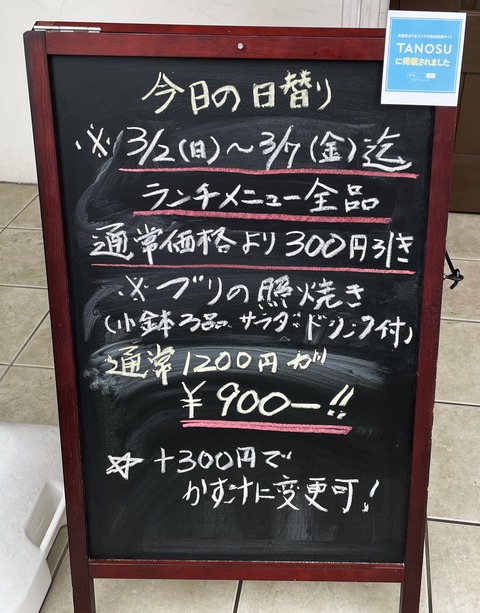 今日の日替り
※ 3/2(日)～3/7(金)迄
ランチメニュー全品
通常価格より300円引き
※ ブリの照焼き
(小鉢3品、サラダ、ドリンク付)
通常1200円が
¥900ー!!
☆ +300円で
かす汁に変更可!
TANOSU
に掲載されました